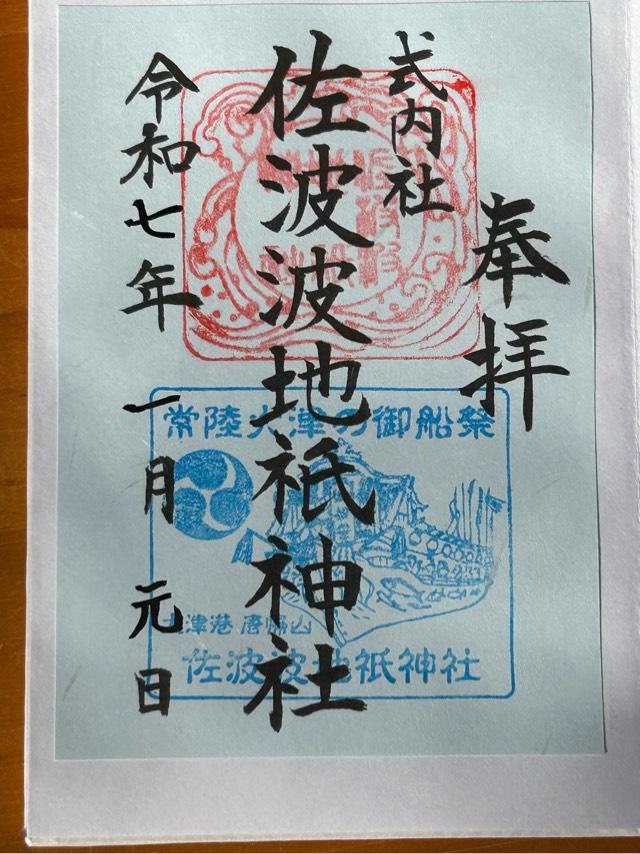 奉拝
式内社
佐波波地祇神社
令和七年一月元日
常陸大津の御船祭
大津港 唐帰山
佐波波地祇神社